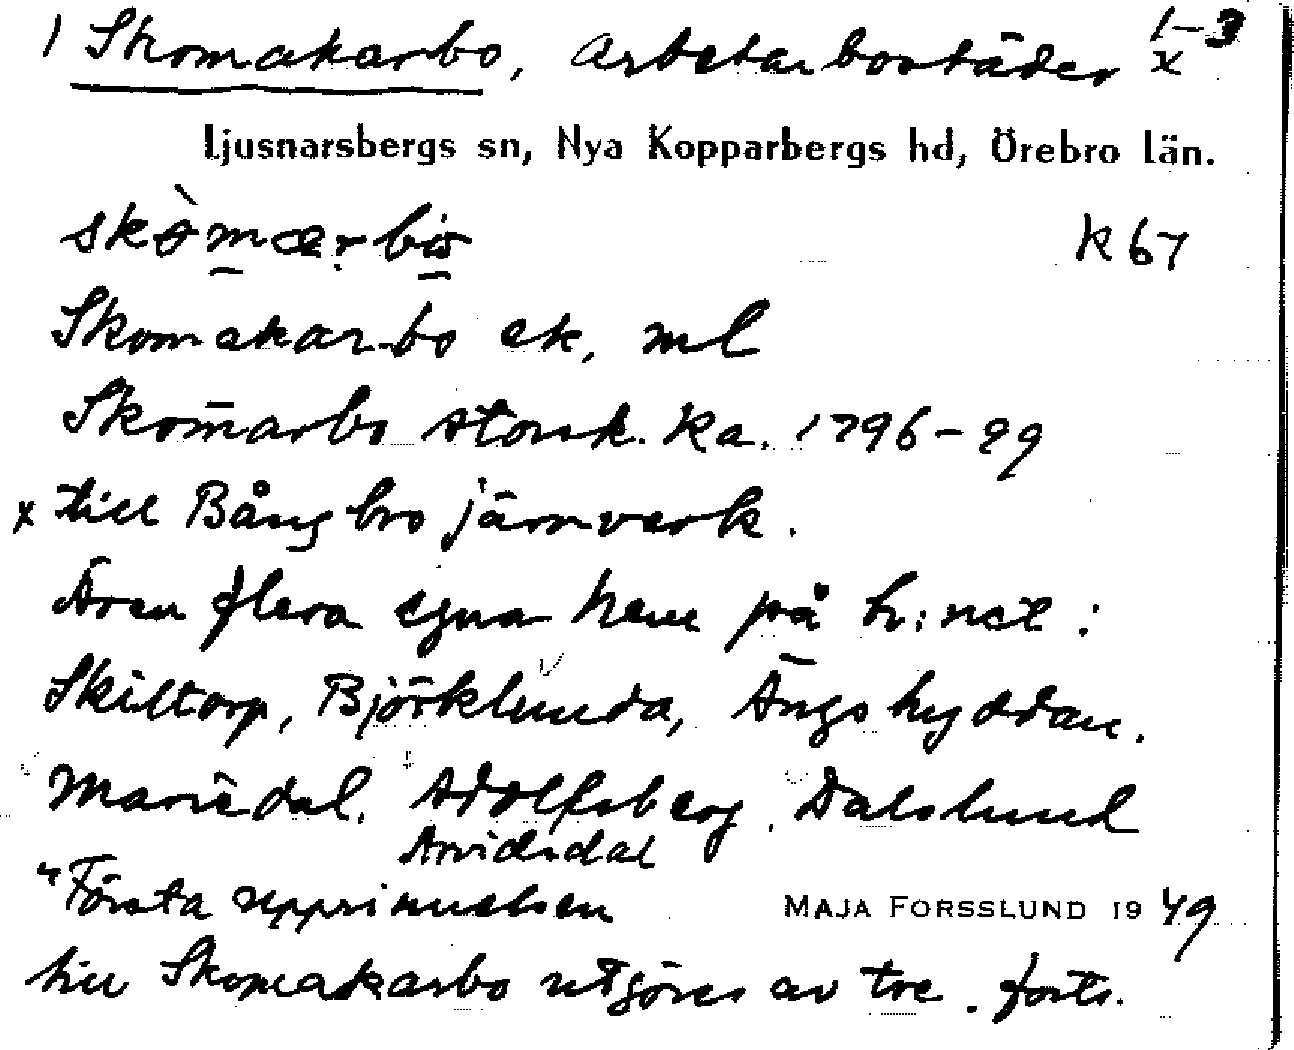 1 Skomakarbo, arbetarbostäder 1-3
x
Ljusnarsbergs sn, Nya Kopparbergs hd, Örebro län.
skòmærbo k 67
Skomakarbo ek, ml
Skom̄arbo storsk. ka. 1796-99
x till Bångbro järnverk.
Även flera egna hem på h:net:
Skiltorp, Björklunda, Ängshyddan.
Mariedal, Adolfsberg, Dalslund
Arvidsdal
"Första upprinnelsen MAJA FORSSLUND 1949
till Skomakarbo utgöres av tre. forts.